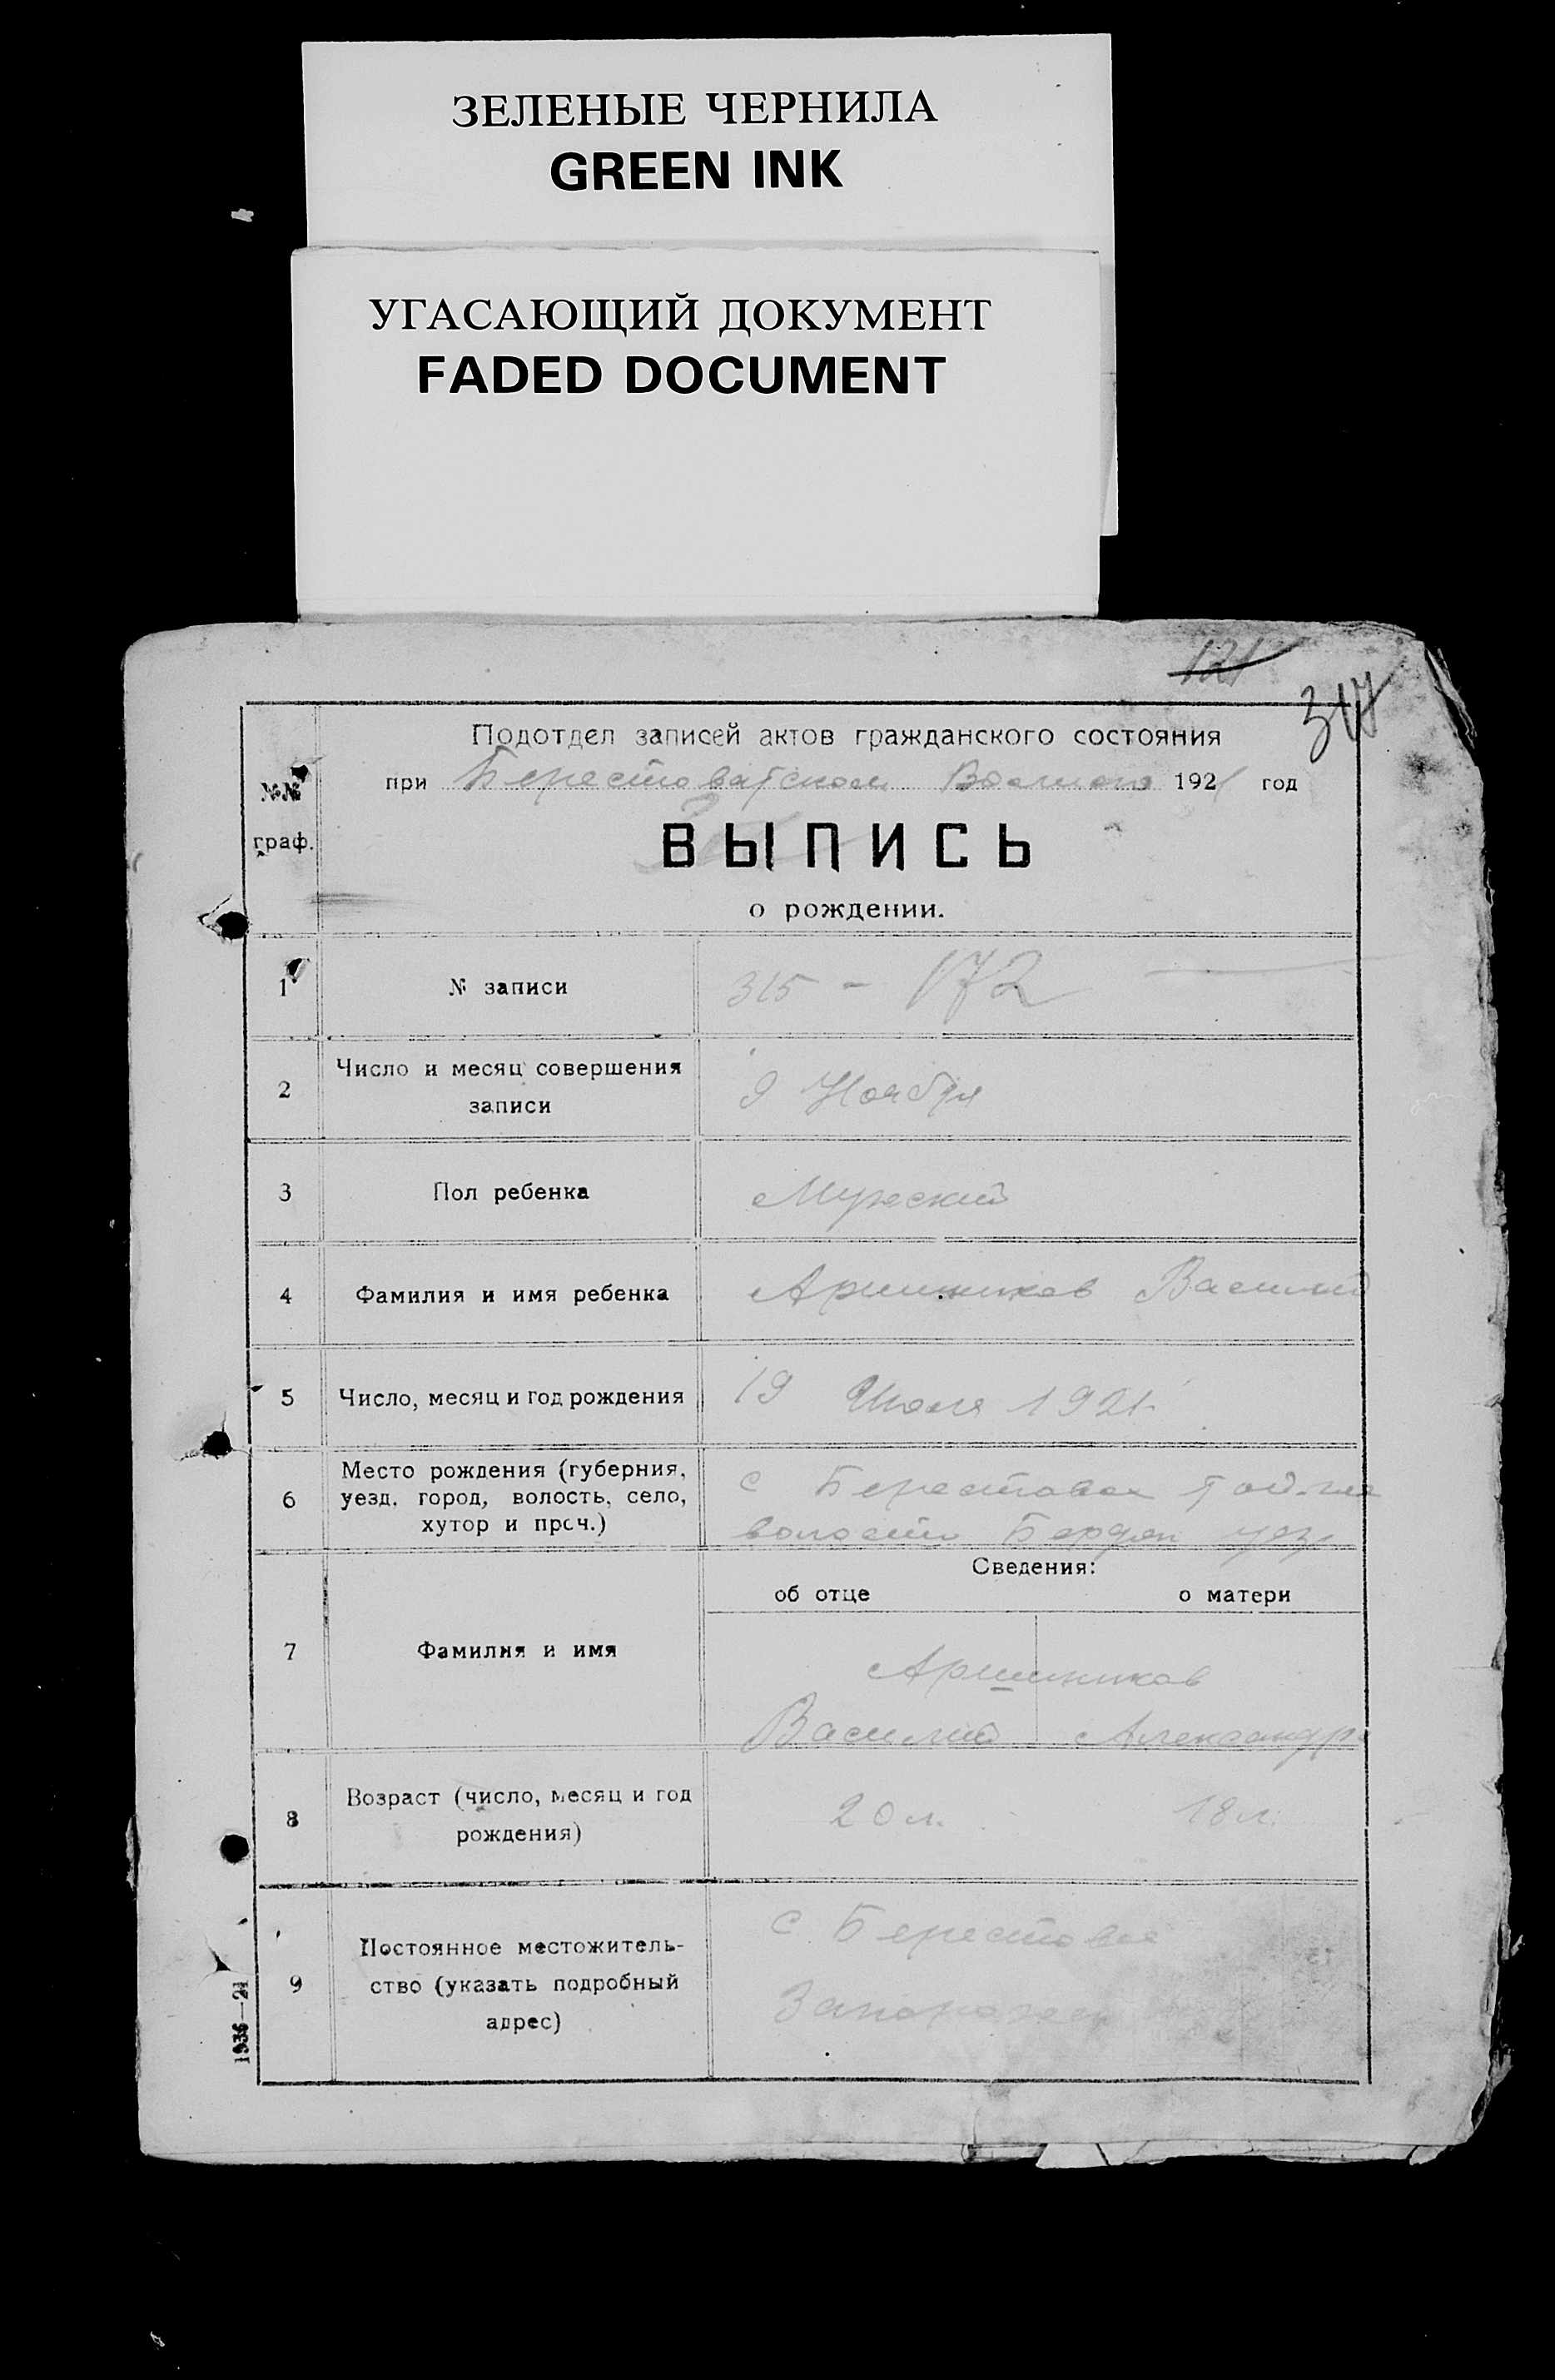 ЗЕЛЕНЫЕ ЧЕРНИЛА
GREEN INK
УГАСАЮЩИЙ ДОКУМЕНТ
FADED DOCUMENT
121
317
Подотдел записей актов гражданского состояния
при Берестоватском 1921 год
№№ граф.
ВЫПИСЬ
о рождении.
1 № записи 315 - 172
2 Число и месяц совершения
записи 9 Ноября
3 Пол ребенка Мужской
4 Фамилия и имя ребенка Аршинников Василий
5 Число, месяц и год рождения 19 Июля 1921
6 Место рождения (губерния,
уезд, город, волость, село,
хутор и проч.)
с Берестовое
волости Бердян уез
Сведения:
об отце о матери
7 Фамилия и имя
Аршинников
Василий Александр
8 Возраст (число, месяц и год
рождения) 20 л. 18 л.
9 Постоянное местожитель-
ство (указать подробный
адрес)
с Берестовое
1936—21